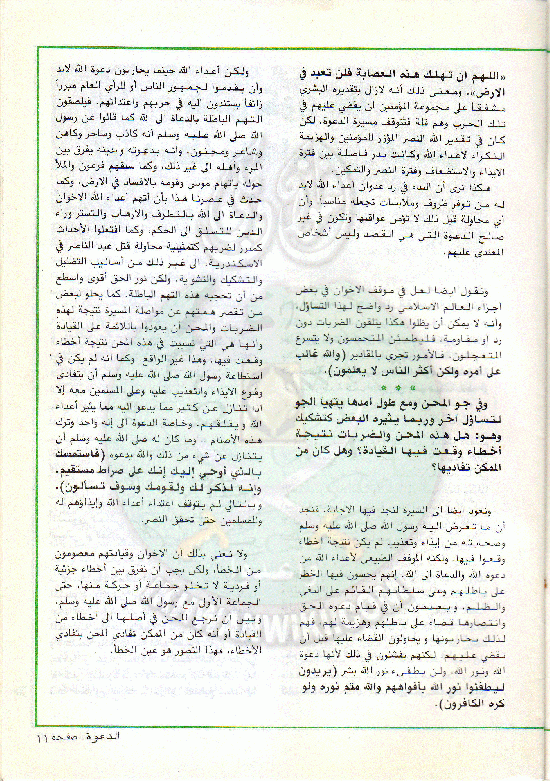 «اللهم ان تهلك هذه العصابة فلن تعبد في
الارض»، ومعنى ذلك أنه لازال بتقديره البشري
مشفقا على مجموعة المؤمنين أن يقضي عليهم في
تلك الحرب وهم قلة فتتوقف مسيرة الدعوة، لكن
كان في تقدير الله النصر المؤزر للمؤمنين والهزيمة
النكراء لأعداء الله وكانت بدر فاصلة بين فترة
الايذاء والاستضعاف وفترة النصر والتمكين.
هكذا نرى أن البدء في رد عدوان أعداء الله لابد
له من توفر ظروف وملابسات تجعله مناسبا، وأن
أي محاولة قبل ذلك لا تؤمن عواقبها وتكون في غير
صالح الدعوة التي هي القصد وليس أشخاص
المعتدى عليهم.
ونقول ايضا لعل في موقف الاخوان في بعض
اجزاء العالم الاسلامي رد واضح لهذا التساؤل،
وأنه لا يمكن أن يظلوا هكذا يتلقون الضربات دون
رد او مقاومة، فليطمئن المتحمسون ولا يتسرع
المتعجلون، فالأمور تجري بالمقادير (والله غالب
على أمره ولكن أكثر الناس لا يعلمون).
* * *
وفي جو المحن ومع طول أمدها يتهيأ الجو
لتساؤل آخر وربما يثيره البعض كتشكيك
وهو: هل هذه المحن والضربات نتيجة
أخطاء وقعت فيها القيادة؟ وهل كان من
الممكن تفاديها؟
ونعود ايضا الى السيرة لنجد فيها الاجابة، فنجد
أن ما تعرض اليه رسول الله صلى الله عليه وسلم
وصحبته من إيذاء وتعذيب، لم يكن نتيجة اخطاء
وقعوا فيها، ولكنه الموقف الطبيعي لأعداء الله من
دعوة الله والدعاة الى الله، إنهم يحسون فيها الخطر
على باطلهم وعلى سلطانهم القائم على البغي
والظلم، ويعلمون أن في قيام دعوة الحق
وانتصارها قضاء على باطلهم وهزيمة لهم، فهم
لذلك يحاربونها ويحاولون القضاء عليها قبل أن
تقضي عليهم، لكنهم يفشلون في ذلك لأنها دعوة
الله ونور الله، ولن يطفىء نور الله بشر (يريدون
ليطفئوا نور الله بأفواههم والله متم نوره ولو
كره الكافرون).
ولكن أعداء الله حينما يحاربون دعوة الله لابد
وأن يقدموا لجمهور الناس أو للرأي العام مبررا
زائفا يستندون اليه في حربهم واعتدائهم، فيلصقون
التهم الباطلة بالدعاة الى الله كما قالوا عن رسول
الله صلى الله عليه وسلم أنه كاذب وساحر وكاهن
وشاعر ومجنون، وأنه بدعوته ودينه يفرق بين
المرء وأهله الى غير ذلك، وكما سفههم فرعون والملأ
حوله باتهام موسى وقومه بالافساد في الارض، وكما
حدث في عصرنا هذا بأن اتهم أعداء الله الاخوان
والدعاة الى الله بالتطرف والارهاب والتستر وراء
الدين للتسلق الى الحكم، وكما افتعلوا الأحداث
كمبرر لضربهم كتمثيلية محاولة قتل عبد الناصر في
الاسكندرية، الى غير ذلك من أساليب التضليل
والتشكيك والتشويه، ولكن نور الحق أقوى وأسطع
من أن تحجبه هذه التهم الباطلة. كما يحلو لبعض
من تقصر همتهم عن مواصلة المسيرة نتيجة لهذه
الضربات والمحن أن يعودوا باللائمة على القيادة
وأنها هي التي تسببت في هذه المحن نتيجة أخطاء
وقعت فيها، وهذا غير الواقع وكما أنه لم يكن في
استطاعة رسول الله صلى الله عليه وسلم أن يتفادى
وقوع الايذاء والتعذيب عليه وعلى المسلمين معه إلا
اذا تنازل عن كثير مما يدعو اليه مما يثير أعداء
الله ويقلقهم، وخاصة الدعوة الى إله واحد وترك
هذه الأصنام .. وما كان له صلى الله عليه وسلم أن
يتنازل عن شيء من ذلك والله يدعوه (فاستمسك
بالذي أوحي إليك إنك على صراط مستقيم.
وإنه لذكر لك ولقومك وسوف تسألون).
وبالتالي لم يتوقف اعتداء أعداء الله وإيذاؤهم له
وللمسلمين حتى تحقق النصر.
ولا نعني بذلك أن الاخوان وقيادتهم معصومون
من الخطأ، ولكن يجب أن نفرق بين أخطاء جزئية
أو فردية لا تخلو جماعة أو حركة منها، حتى
الجماعة الأولى مع رسول الله صلى الله عليه وسلم،
وبين أن نرجع المحن في أصلها الى اخطاء من
القيادة أو أنه كان من الممكن تفادي المحن بتفادي
الأخطاء، فهذا التصور هو عين الخطأ.
الدعوة . صفحة ١١